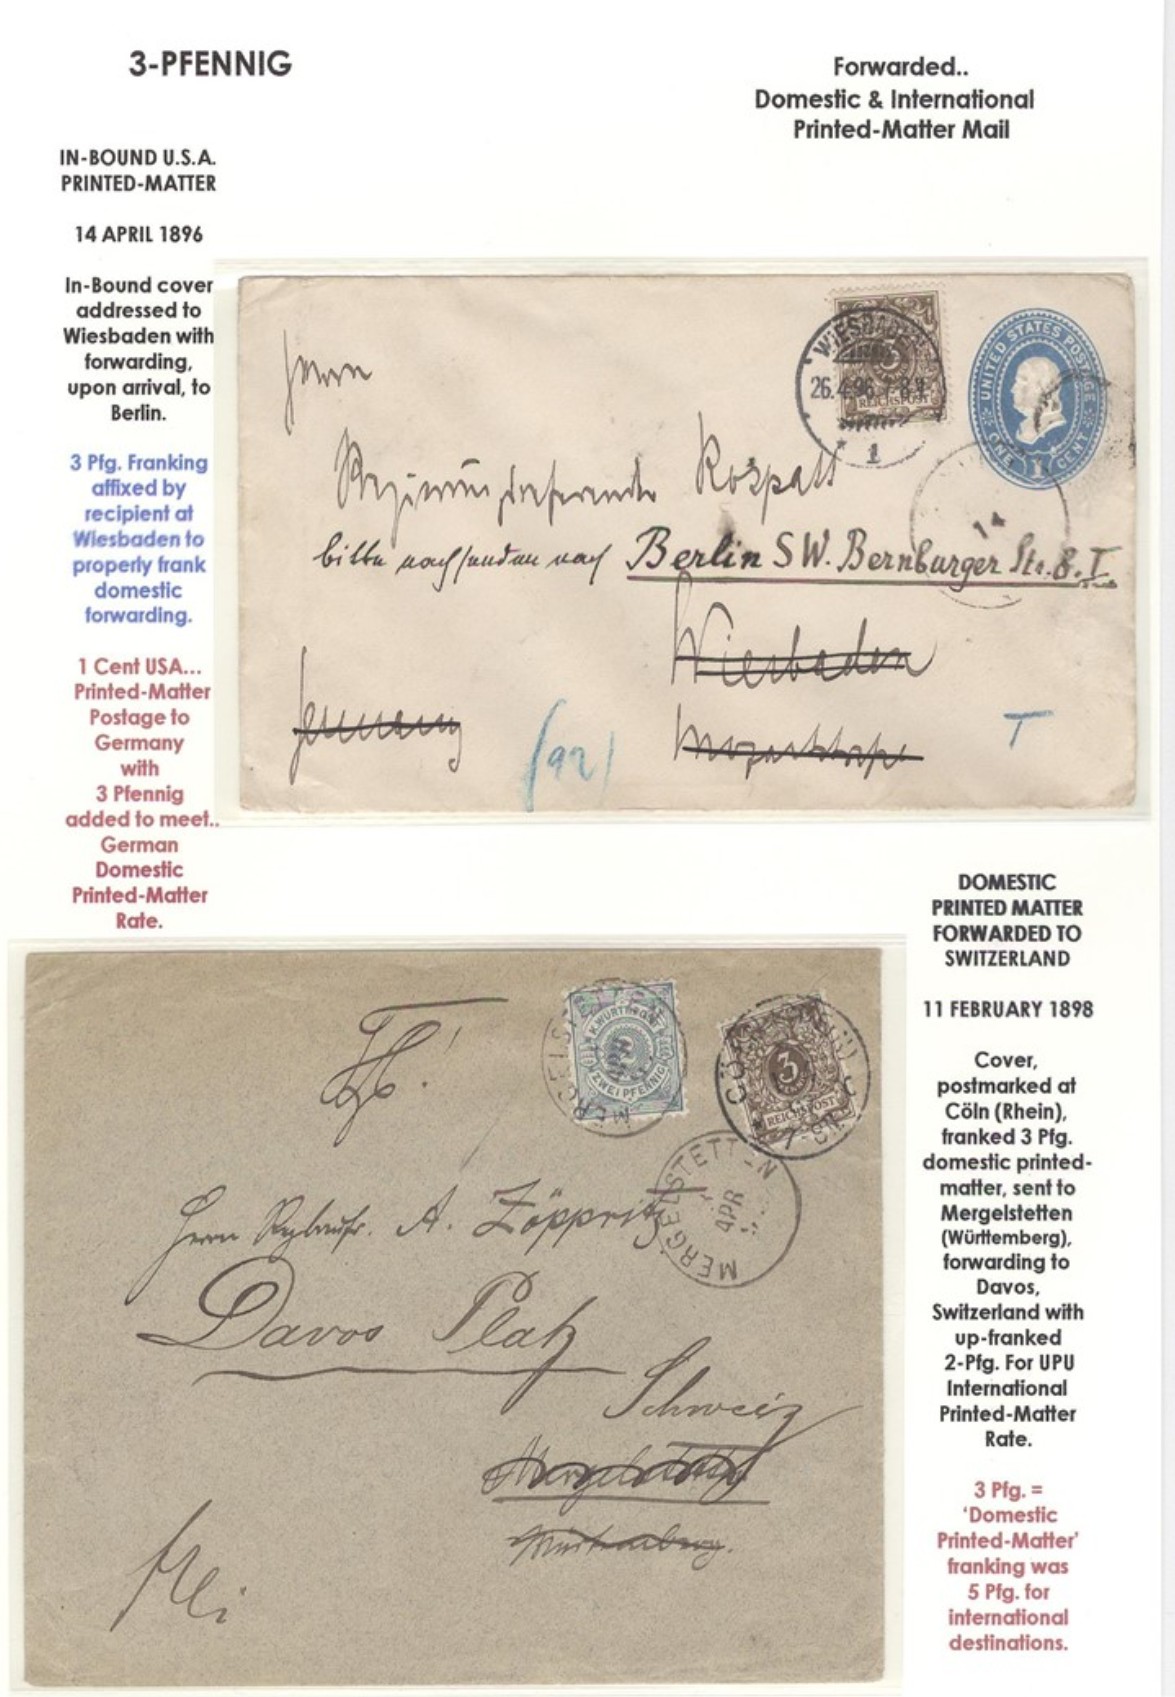 3-PFENNIG
Forwarded..
Domestic & International
Printed-Matter Mail
IN-BOUND U.S.A.
PRINTED-MATTER
14 APRIL 1896
In-Bound cover
addressed to
Wiesbaden with
forwarding,
upon arrival, to
Berlin.
3 Pfg. Franking
affixed by
recipient at
Wiesbaden to
properly frank
domestic
forwarding.
1 Cent USA...
Printed-Matter
Postage to
Germany
with
3 Pfennig
added to meet..
German
Domestic
Printed-Matter
Rate.
WIESBADEN
26.4.96 7-8V
1
3
REICHSPOST
UNITED STATES POSTAGE
ONE 1 CENT
14
Herrn
Rospatt
bitte nachsenden nach Berlin SW. Bernburger Str. 8. I
Wiesbaden
Germany
(92)
T
DOMESTIC
PRINTED MATTER
FORWARDED TO
SWITZERLAND
11 FEBRUARY 1898
Cover,
postmarked at
Cöln (Rhein),
franked 3 Pfg.
domestic printed-
matter, sent to
Mergelstetten
(Württemberg),
forwarding to
Davos,
Switzerland with
up-franked
2-Pfg. For UPU
International
Printed-Matter
Rate.
3 Pfg. =
'Domestic
Printed-Matter'
franking was
5 Pfg. for
international
destinations.
K.WÜRTTEMB.
2
ZWEI PFENNIG
MERGELSTETTEN
3
REICHSPOST
7-8N
MERGELSTETTEN
APR
Herrn A. Zöppritz
Davos Platz
Schweiz
Mergelstetten
Württemberg.